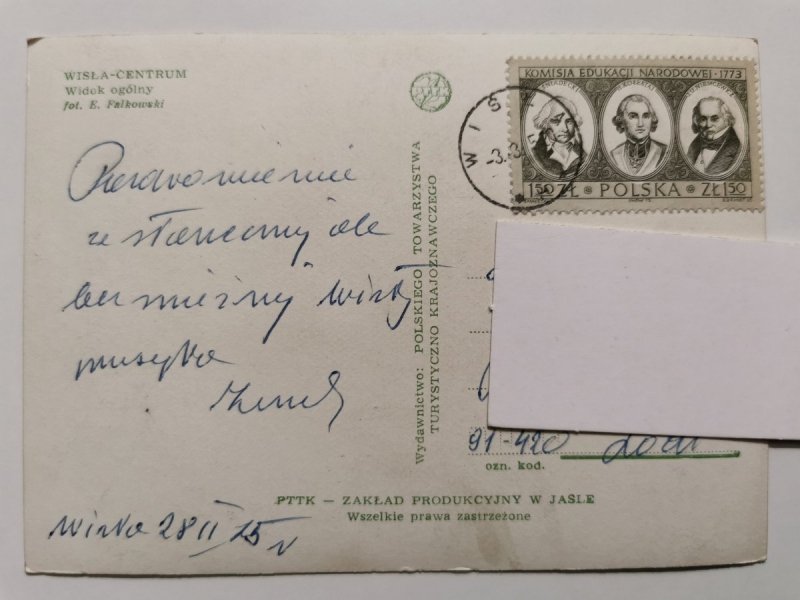 WISŁA-CENTRUM
Widok ogólny
fot. E. Falkowski
KOMISJA EDUKACJI NARODOWEJ · 1773
1,50 ZŁ POLSKA ZŁ 1,50
WISŁA
Pozdrowienie
ze słonecznej ale
bezśnieżnej Wisły
przesyła
Wydawnictwo: POLSKIEGO TOWARZYSTWA
TURYSTYCZNO KRAJOZNAWCZEGO
91-420 Łódź
ozn. kod.
PTTK — ZAKŁAD PRODUKCYJNY W JAŚLE
Wszelkie prawa zastrzeżone
Wisła 28 II 75 r